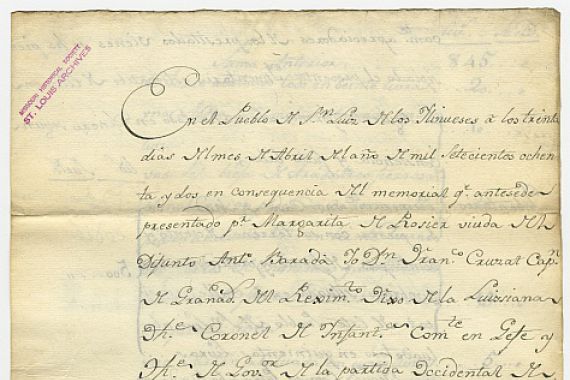 MISSOURI HISTORICAL SOCIETY
ST. LOUIS ARCHIVES
845
20
En el Pueblo de Sn. Luiz de los Ylinueses á los treinta
dias del mes de Abril del año de mil Setecientos ochen-
ta y dos en consequencia del memorial qe. antesede
presentado pr. Margarita de Rosier viuda del
Difunto Anto. Baradá Yo Dn. Franco. Cruzat Capn.
de Granads. del Reximto. Dixo de la Luiziana
Thte. Coronel de Infanta. Comte. en Gefe y
Thte. de Govor. de la partida Occidental de